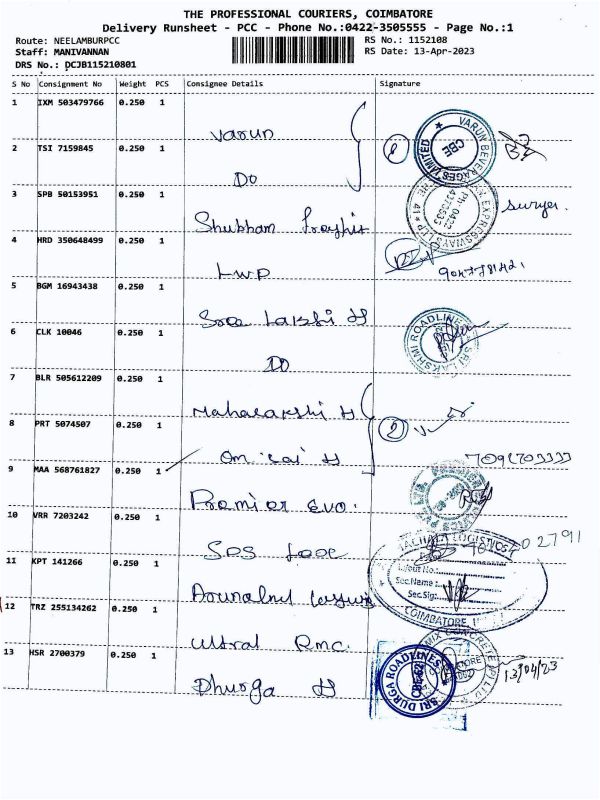 THE PROFESSIONAL COURIERS, COIMBATORE
Delivery Runsheet - PCC - Phone No.:0422-3505555 - Page No.:1
Route: NEELAMBURPCC
RS No.: 1152108
Staff: MANIVANNAN
RS Date: 13-Apr-2023
DRS No.: DCJB115210801
S No Consignment No Weight PCS Consignee Details Signature
1 IXM 503479766 0.250 1
Varun
VARUN BEVERAGES LIMITED CBE
2 TSI 7159845 0.250 1
DO
3 SPB 50153951 0.250 1
Shubham
Surya.
4 HRD 350648499 0.250 1
LWP
5 BGM 16943438 0.250 1
Sree Lakshi H
SRI LAKSHMI ROADLINES
6 CLK 10046 0.250 1
DO
7 BLR 505612209 0.250 1
Mahalakshi H
8 PRT 5074507 0.250 1
Om Sai H
2
9 MAA 568761827 0.250 1
Premier Evo.
10 VRR 7203242 0.250 1
SPS
LOGISTICS
11 KPT 141266 0.250 1
In/out No:
Sec.Name:
Sec.Sig:
COIMBATORE
12 TRZ 255134262 0.250 1
Ultral RMC.
13 HSR 2700379 0.250 1
Dhurga H
SRI DURGA ROADLINES
13/04/23